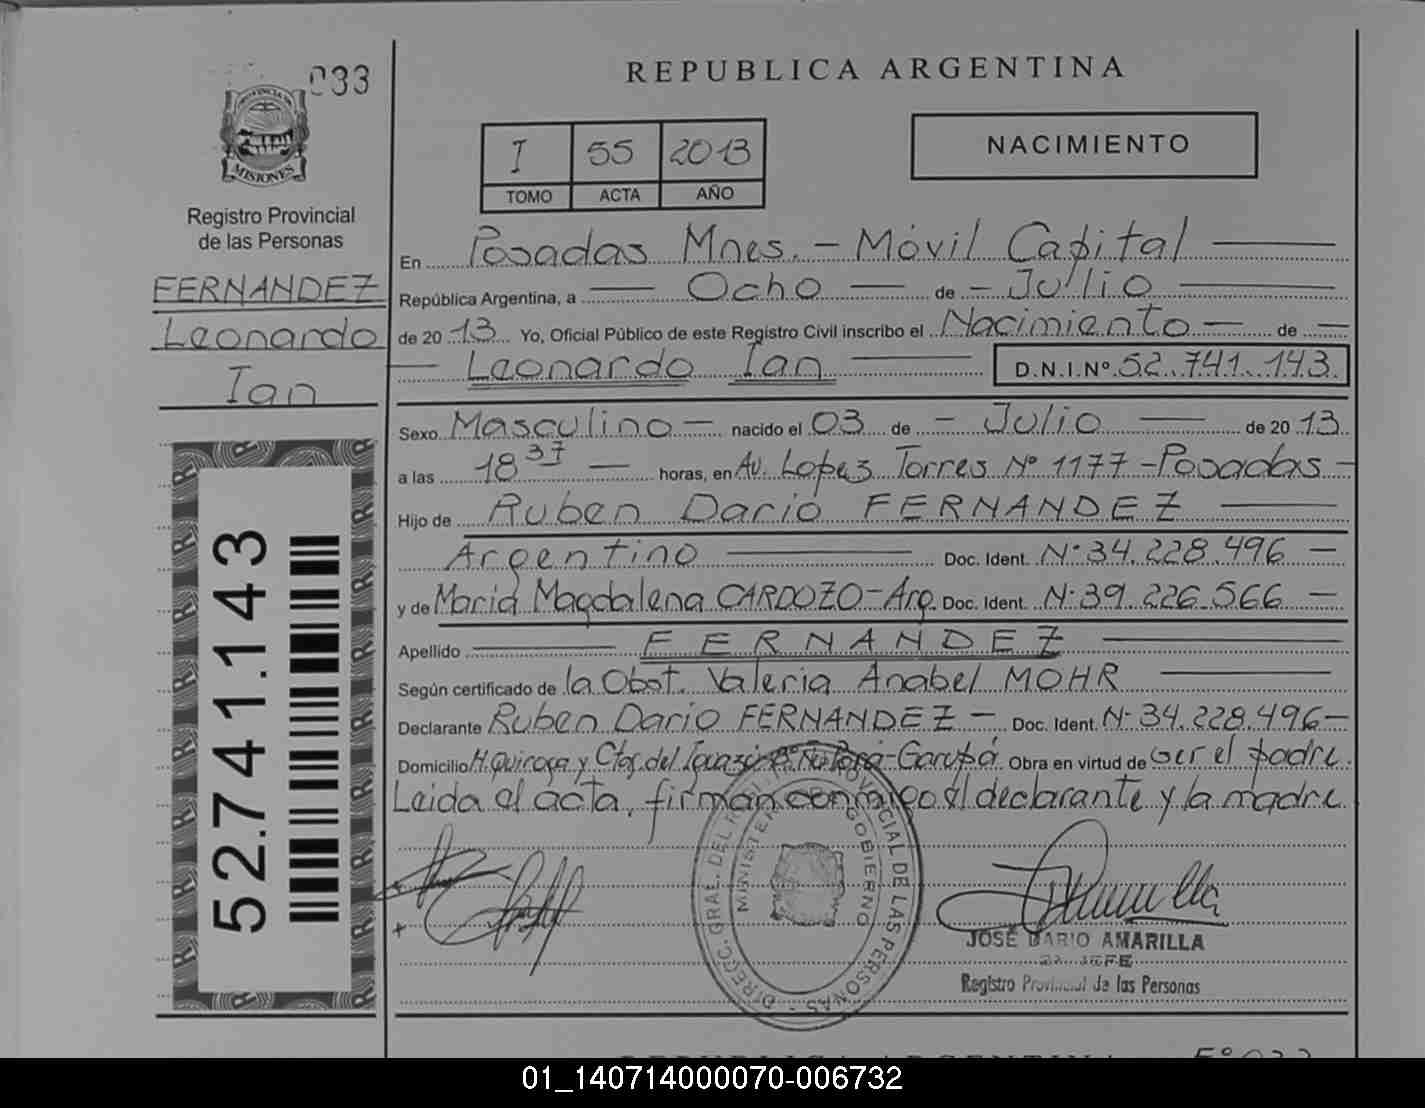 033
PROVINCIA DE
MISIONES
Registro Provincial
de las Personas
FERNANDEZ
Leonardo
Ian
52.741.143
REPUBLICA ARGENTINA
I 55 2013
TOMO ACTA AÑO
NACIMIENTO
En Posadas Mnes. - Móvil Capital
República Argentina, a Ocho de - Julio
de 20 13 Yo, Oficial Público de este Registro Civil inscribo el Nacimiento - de -
Leonardo Ian D.N.I.Nº 52.741.143
Sexo Masculino - nacido el 03 de - Julio de 20 13
a las 18 37 - horas, en Av. Lopez Torres Nº 1177 - Posadas -
Hijo de Ruben Dario FERNANDEZ
Argentino Doc. Ident. Nº 34.228.496 -
y de Maria Magdalena CARDOZO - Arg. Doc. Ident. Nº 39.226.566 -
Apellido FERNANDEZ
Según certificado de la Obst. Valeria Anabel MOHR
Declarante Ruben Dario FERNANDEZ - Doc. Ident. Nº 34.228.496 -
Domicilio H. Quiroga y Ctas. del Iguazú Bº - Garupá Obra en virtud de ser el padre.
Leida el acta, firman conmigo el declarante y la madre
DIRECC. GRAL. DEL PROVINCIAL DE LAS PERSONAS
MINISTERIO GOBIERNO
JOSÉ DARIO AMARILLA
JEFE
Registro Provincial de las Personas
REPUBLICA ARGENTINA
01_140714000070-006732